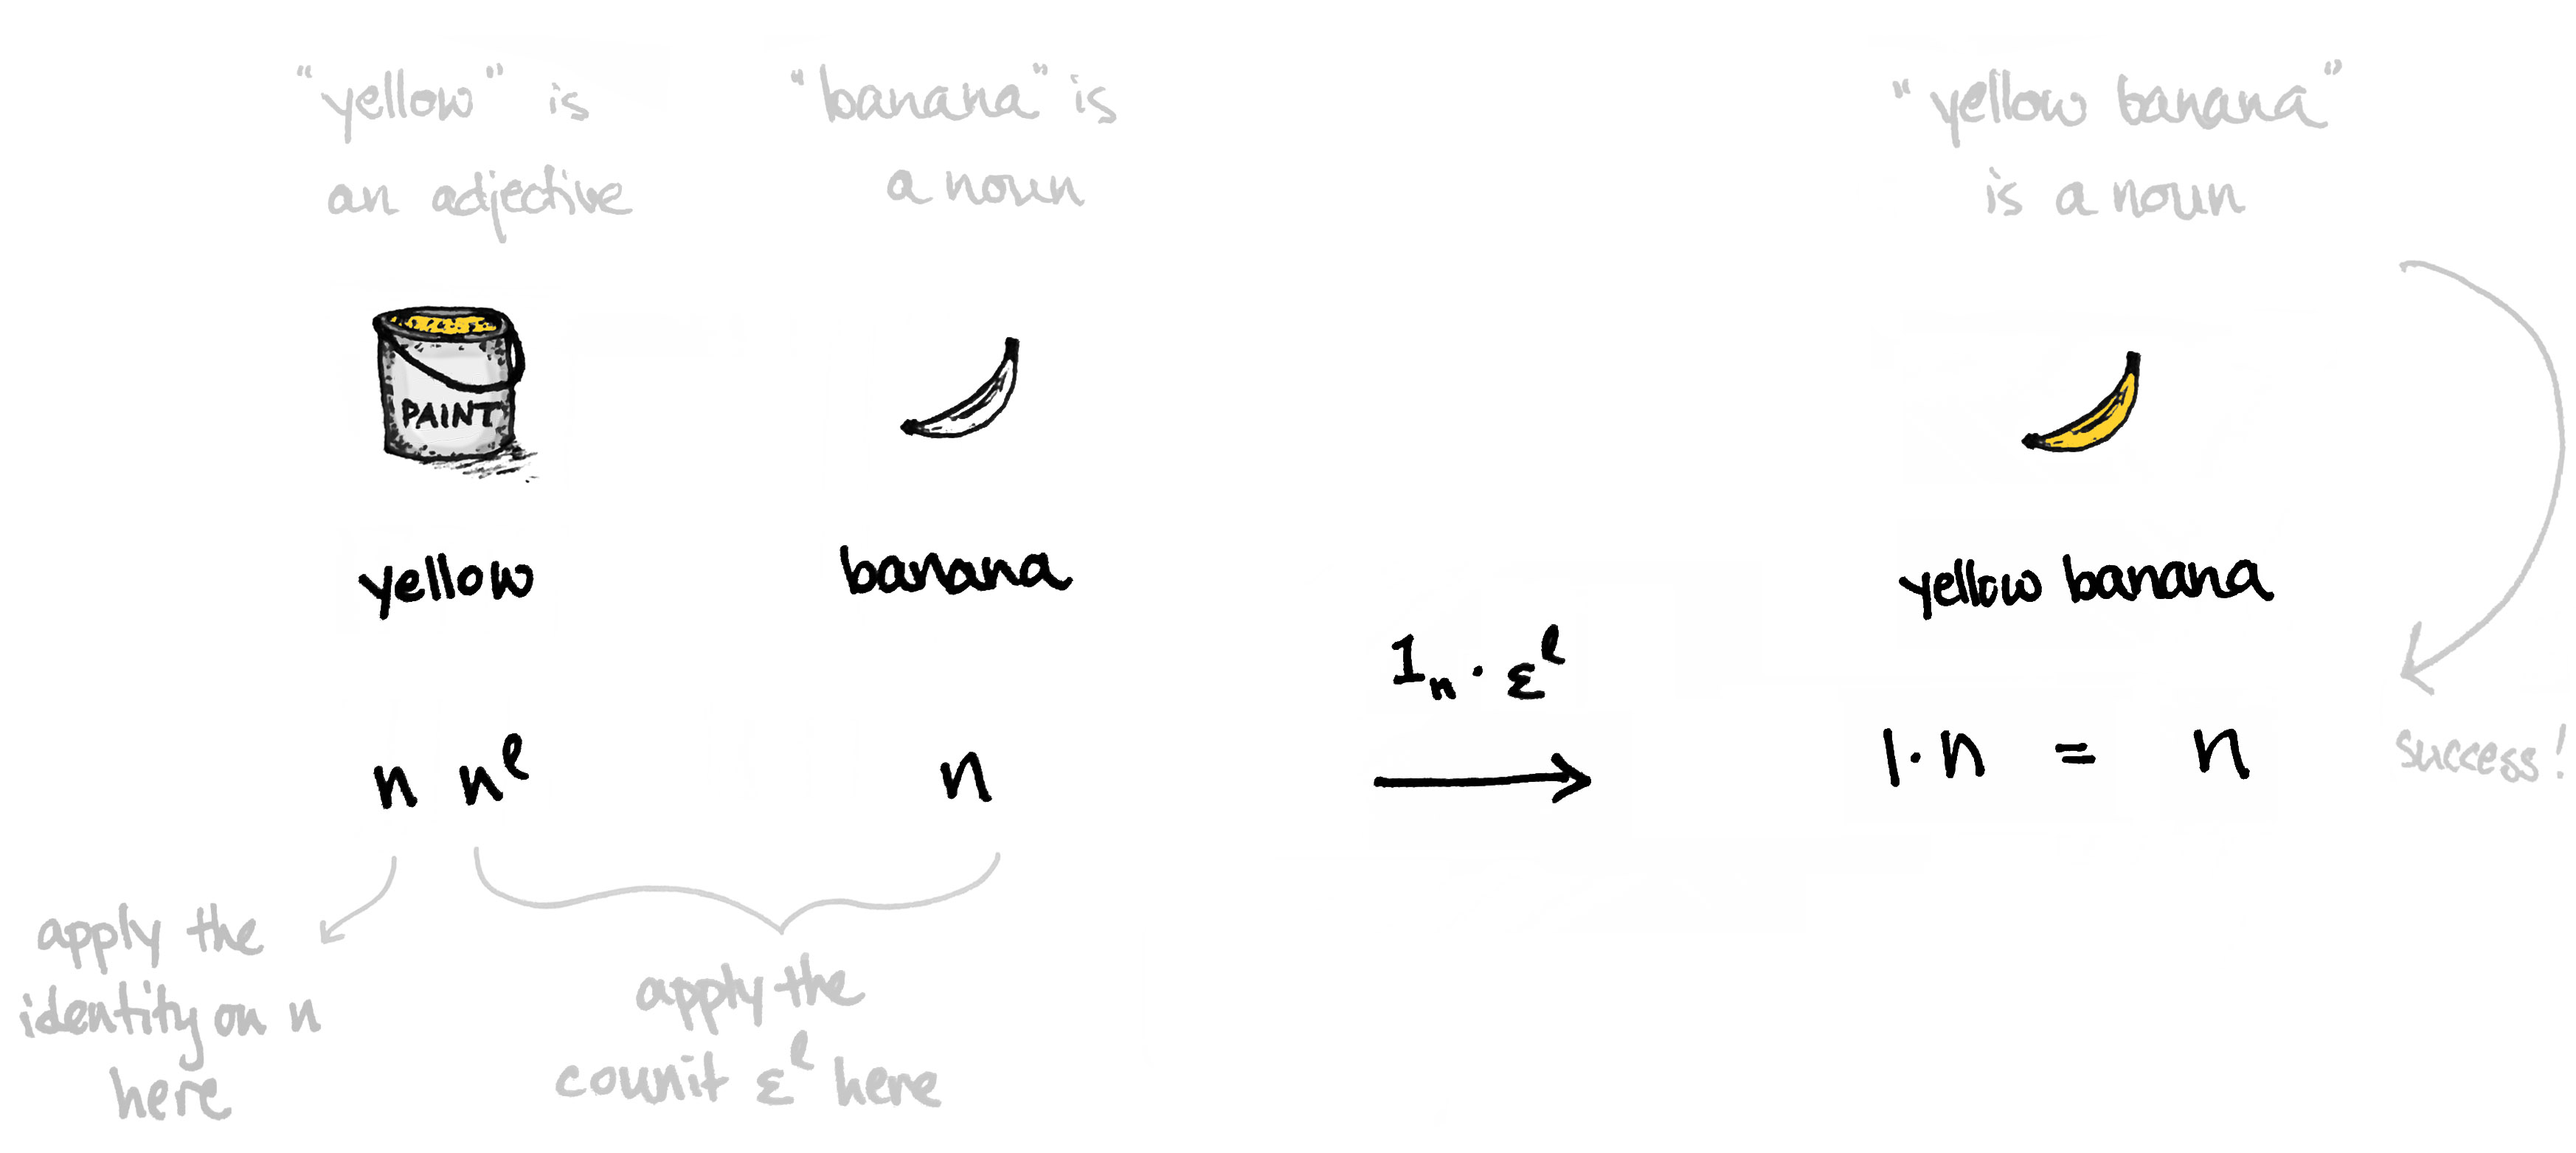 "yellow" is
an adjective
"banana" is
a noun
"yellow banana"
is a noun
PAINT
yellow
banana
yellow banana
n nˡ
n
1ₙ · εˡ
1·n = n
success!
apply the
identity on n
here
apply the
counit εˡ here